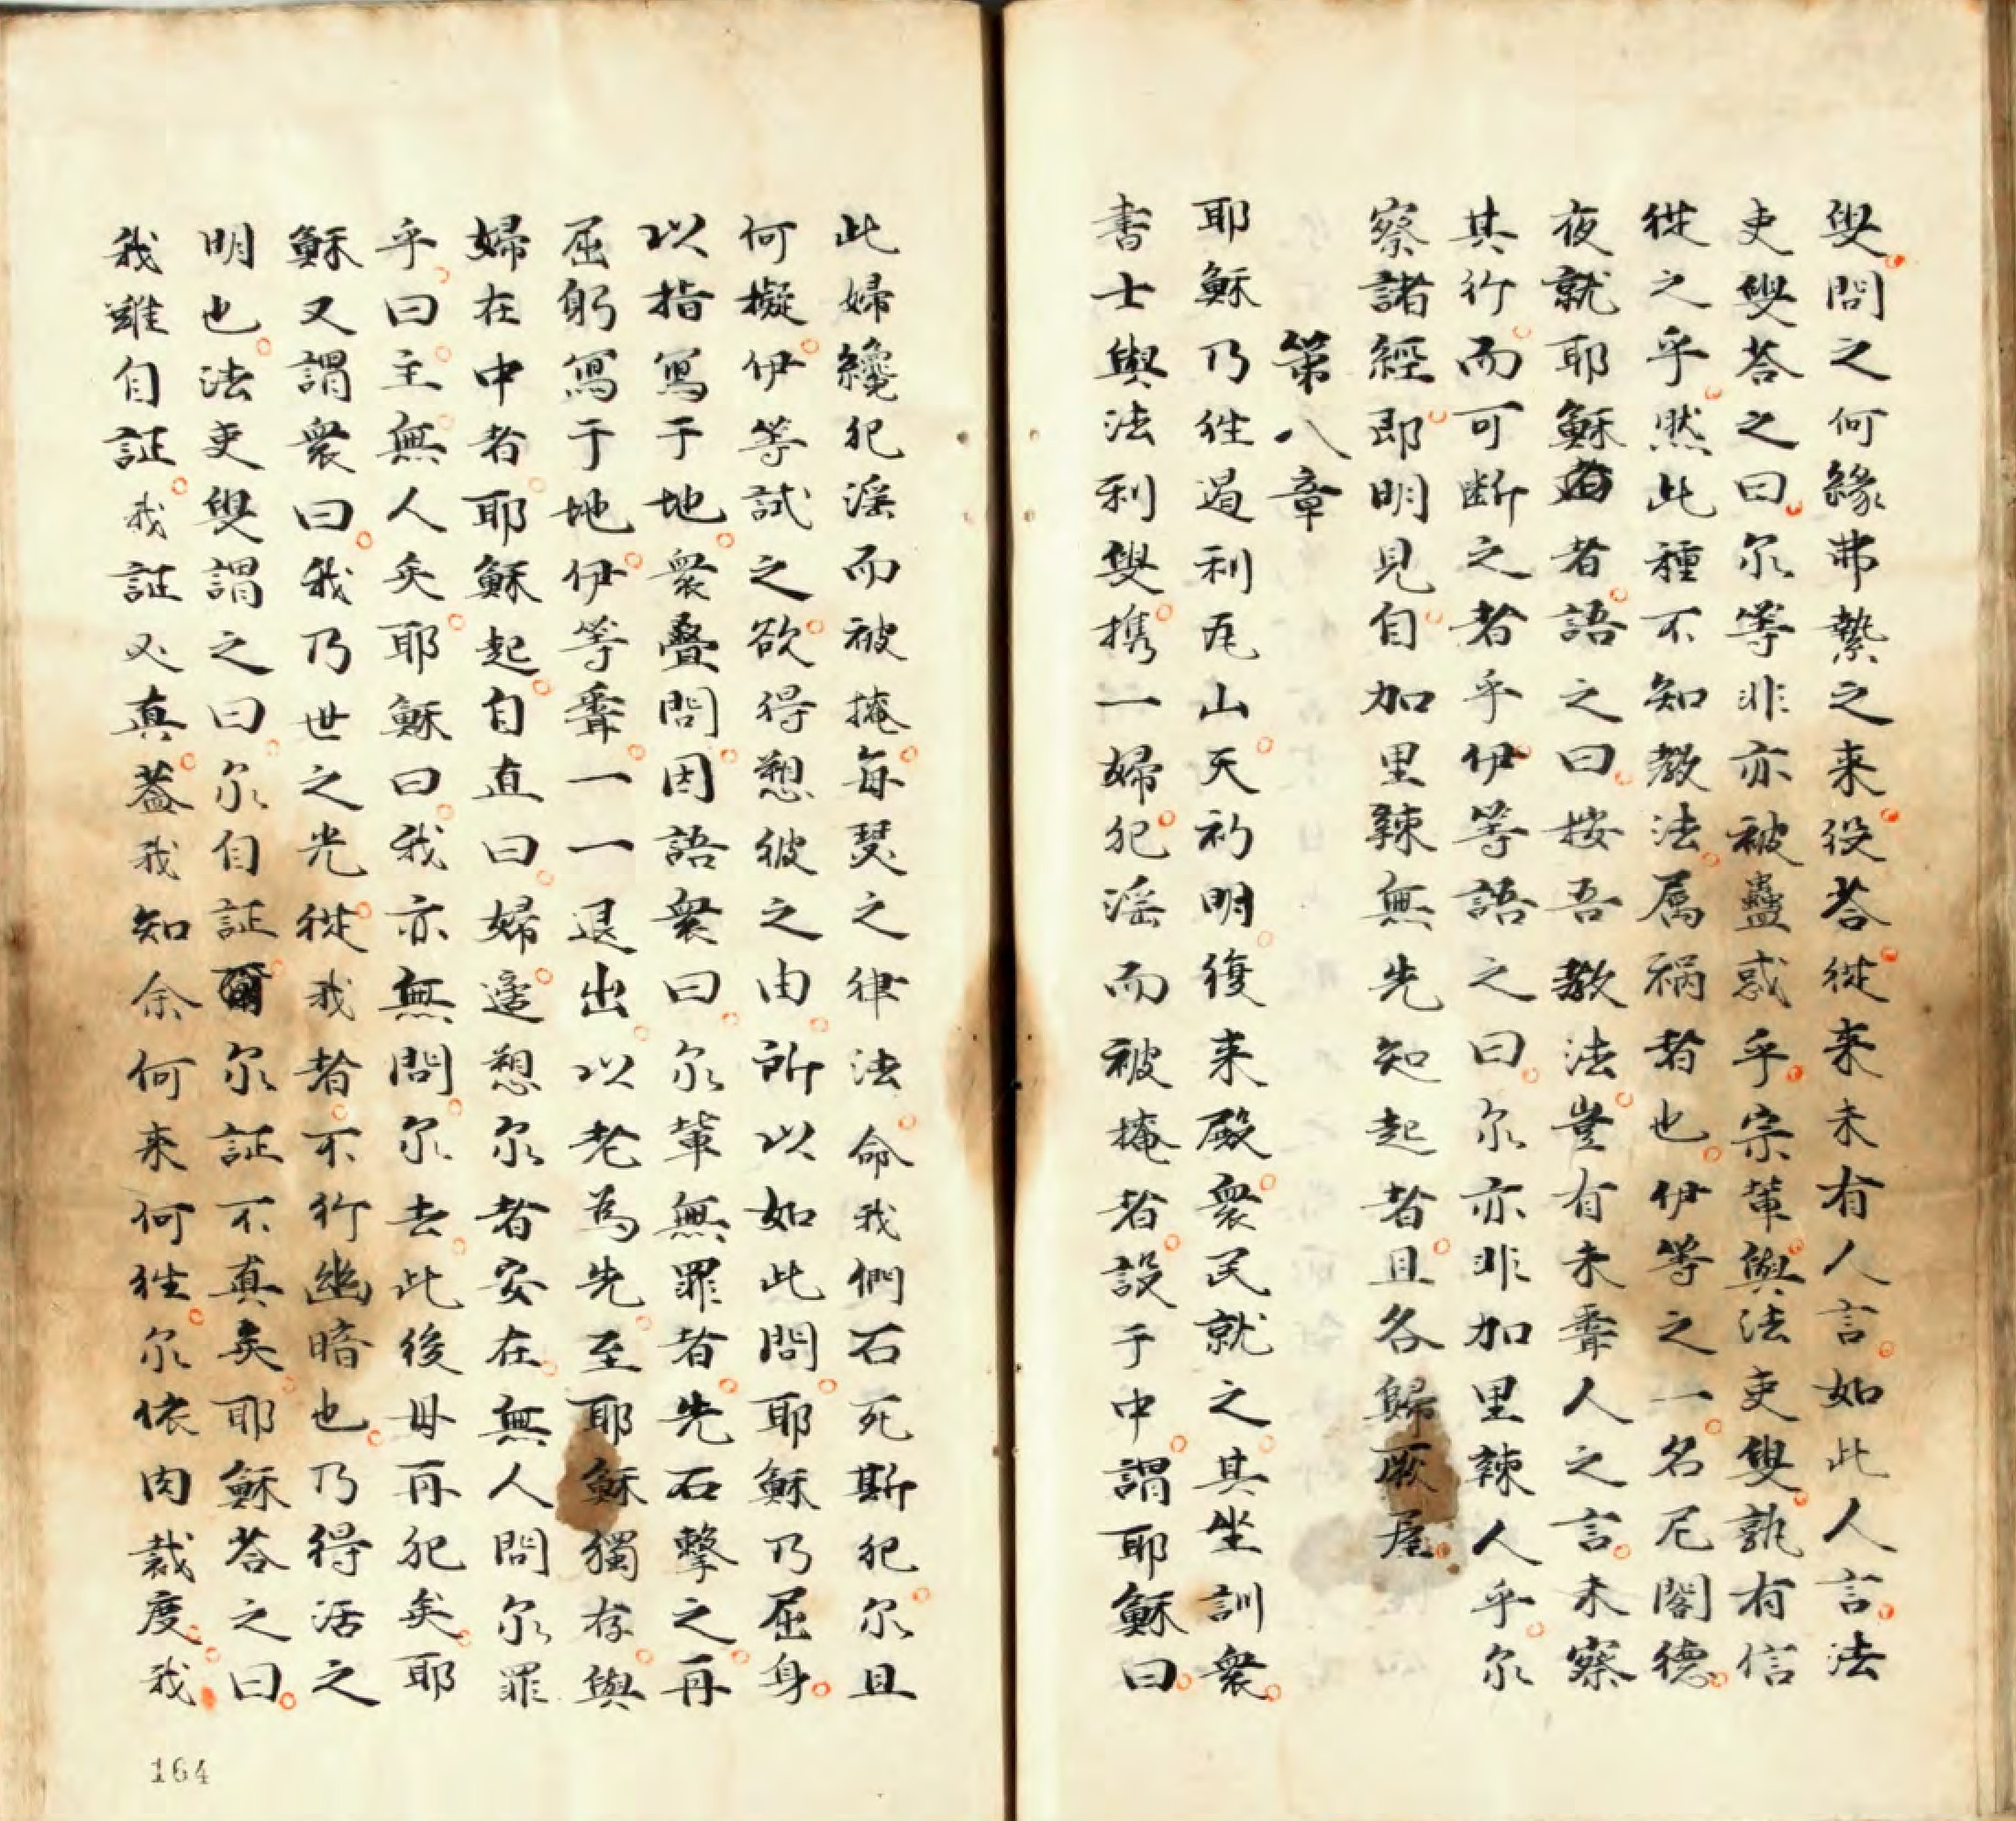 叟問之何緣弗縶之来役荅従来未有人言如此人言法
吏叟荅之曰尔等非亦被蠱惑乎宗輩與法吏叟孰有信
従之乎然此種不知教法属禍者也伊等之一名尼閣德
夜就耶穌者語之曰按吾教法豈有未聽人之言未察
其行而可断之者乎伊等語之曰尔亦非加里辣人乎尔
察諸經即明見自加里辣無先知起者且各歸厥屋
第八章
耶穌乃往過利瓦山天礿明復来殿衆民就之其坐訓衆
書士與法利叟携一婦犯淫而被掩者設于中謂耶穌曰
此婦纔犯淫而被掩每瑟之律法命我們石死斯犯尔且
何擬伊等試之欲得愬彼之由所以如此問耶穌乃屈身
以指寫于地衆疊問因語衆曰尔輩無罪者先石擊之再
屈躬寫于地伊等聽一一退出以老為先至耶穌獨存與
婦在中者耶穌起自直曰婦遥愬尔者安在無人問尔罪
乎曰主無人矣耶穌曰我亦無問尔去此後毋再犯矣耶
穌又謂衆曰我乃世之光従我者不行幽暗也乃得活之
明也法吏叟謂之曰尔自証尔証不真矣耶穌荅之曰
我雖自証我証又真葢我知余何来何往尔依肉裁度我
164